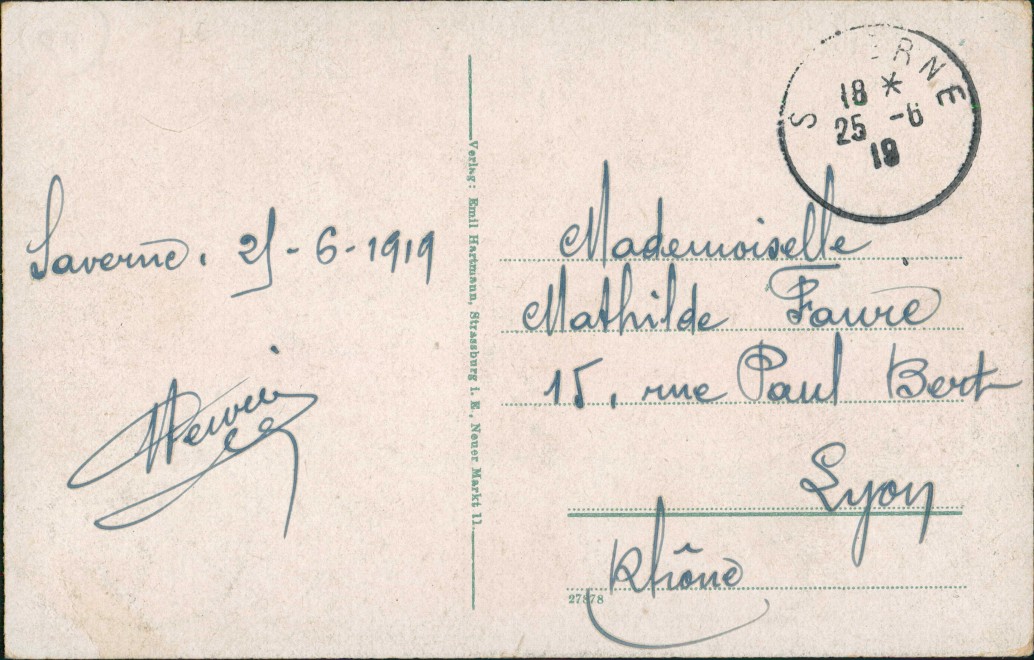 Saverne. 25-6-1919
Verlag: Emil Hartmann, Strassburg i. E., Neuer Markt 11.
S ERNE
18 *
25 -6
19
Mademoiselle
Mathilde Faure
15, rue Paul Bert
Lyon
Rhône
27878